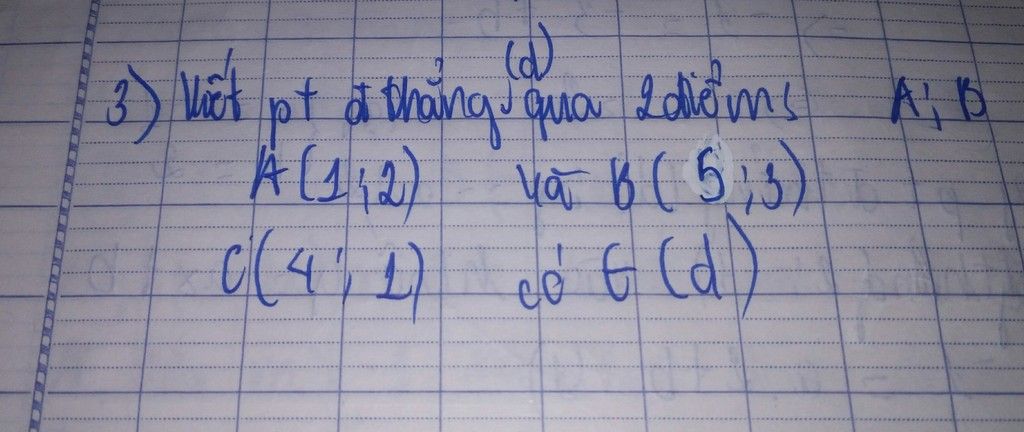 3) Viết pt đ thẳng (d) qua 2 điểm A; B
A(1;2) và B(5;3)
C(4;1) có ∈ (d)